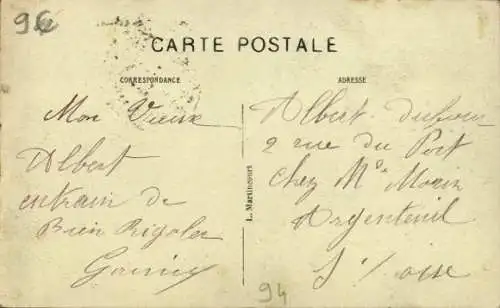 96
CARTE POSTALE
CORRESPONDANCE
ADRESSE
Mon Vieux
Albert
entrain de
Bien Rigoler
L. Martincourt
Albert Dufour
2 rue du Port
chez Me Morin
Argenteuil
S/oise
94